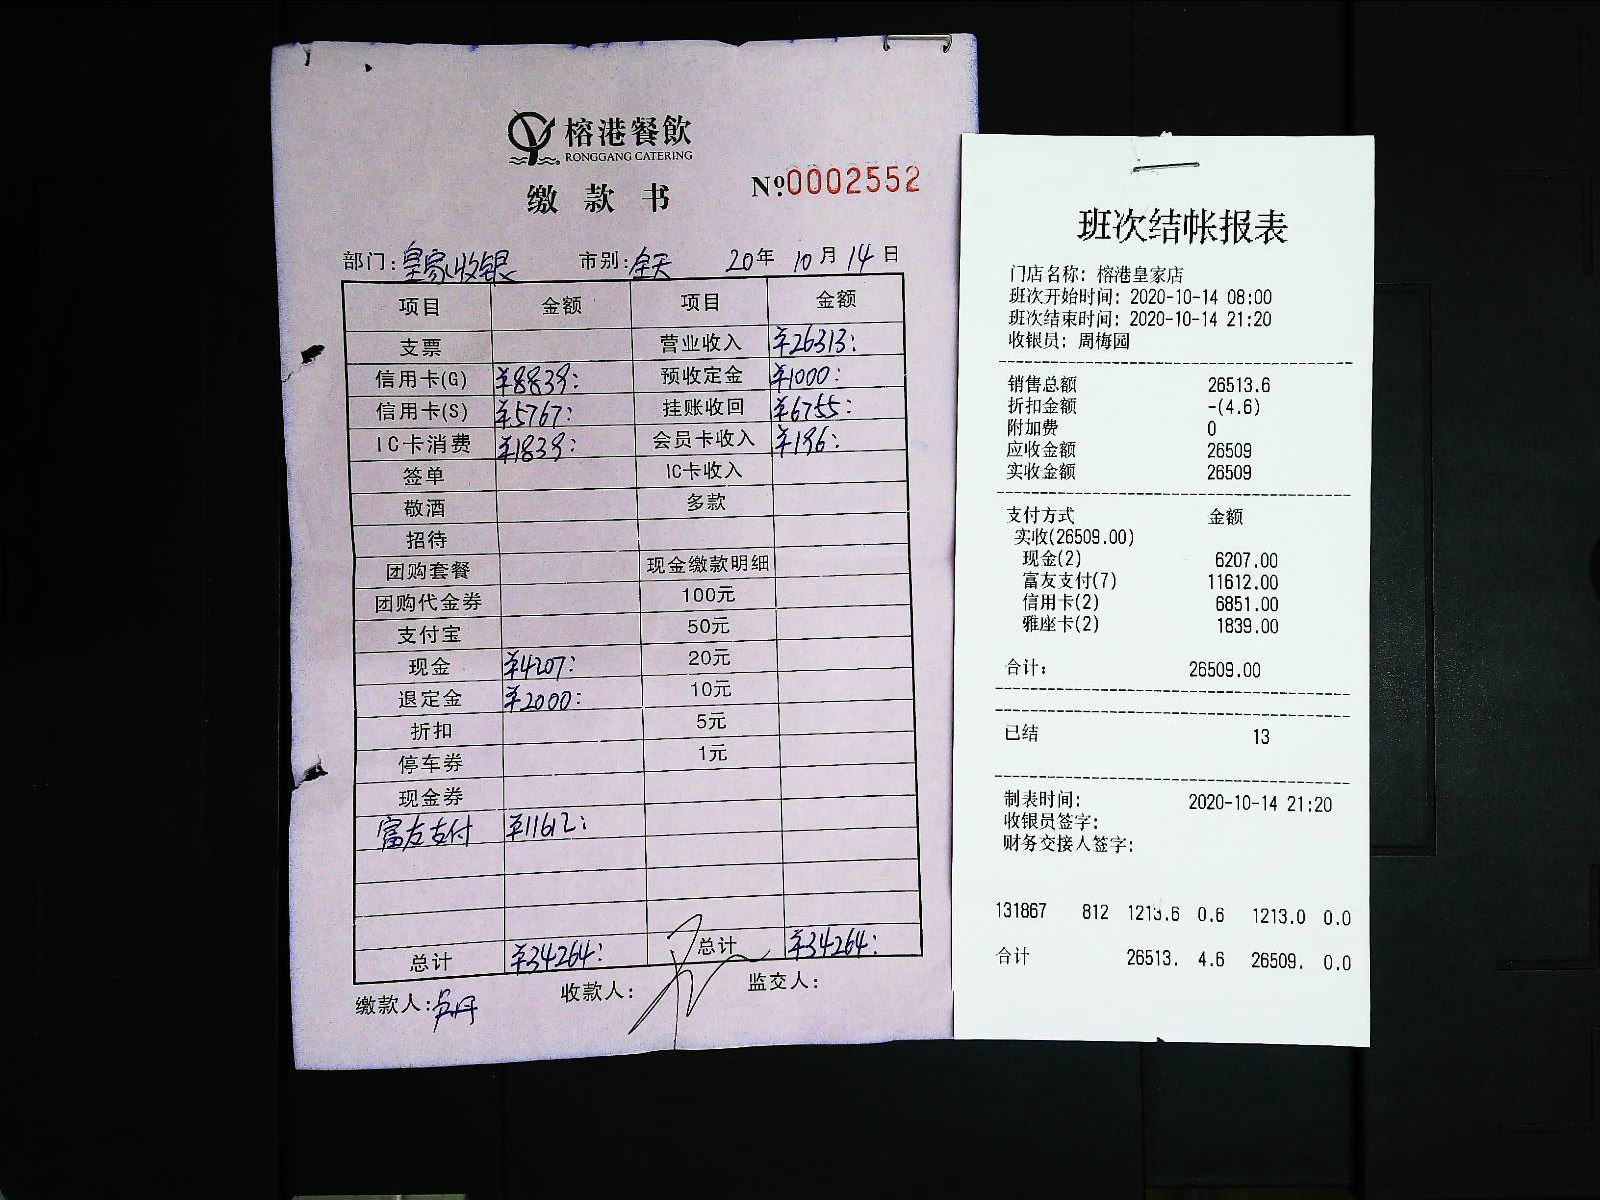 榕港餐飲
RONGGANG CATERING
缴款书
№0002552
部门:皇家收银 市别:全天 20年 10月 14日
项目 金额 项目 金额
支票 营业收入 ¥26313:
信用卡(G) ¥8839: 预收定金 ¥1000:
信用卡(S) ¥5767: 挂账收回 ¥6755:
IC卡消费 ¥1839: 会员卡收入 ¥196:
签单 IC卡收入
敬酒 多款
招待
团购套餐 现金缴款明细
团购代金券 100元
支付宝 50元
现金 ¥4207: 20元
退定金 ¥2000: 10元
折扣 5元
停车券 1元
现金券
富友支付 ¥11612:
总计 ¥34264: 总计 ¥34264:
缴款人: 收款人: 监交人:
班次结帐报表
门店名称: 榕港皇家店
班次开始时间: 2020-10-14 08:00
班次结束时间: 2020-10-14 21:20
收银员: 周梅园
销售总额 26513.6
折扣金额 -(4.6)
附加费 0
应收金额 26509
实收金额 26509
支付方式 金额
实收(26509.00)
现金(2) 6207.00
富友支付(7) 11612.00
信用卡(2) 6851.00
雅座卡(2) 1839.00
合计: 26509.00
已结 13
制表时间: 2020-10-14 21:20
收银员签字:
财务交接人签字:
131867 812 1213.6 0.6 1213.0 0.0
合计 26513. 4.6 26509. 0.0